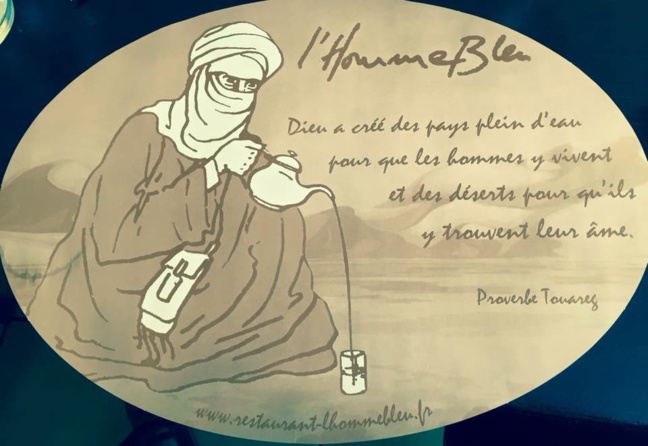 l'Homme Bleu
Dieu a créé des pays plein d'eau
pour que les hommes y vivent
et des déserts pour qu'ils
y trouvent leur âme.
Proverbe Touareg
www.restaurant-lhommebleu.fr